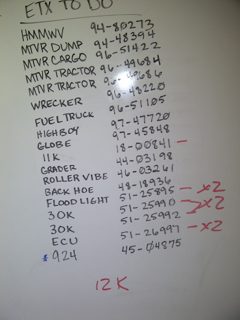 ETX TO DO
HMMWV 94-80273
MTVR DUMP 94-48394
MTVR CARGO 96-51422
MTVR TRACTOR 96-49684
MTVR TRACTOR 96-49686
WRECKER 96-48220
FUEL TRUCK 96-51105
HIGHBOY 97-47720
GLOBE 97-45848
11K 18-00841 –
GRADER 44-03198
ROLLER VIBE 46-03261
BACK HOE 48-18936
FLOOD LIGHT 51-25895 – x2
30K 51-25990 – x2
30K 51-25992
ECU 51-26997 – x2
$924 45-04875
12K